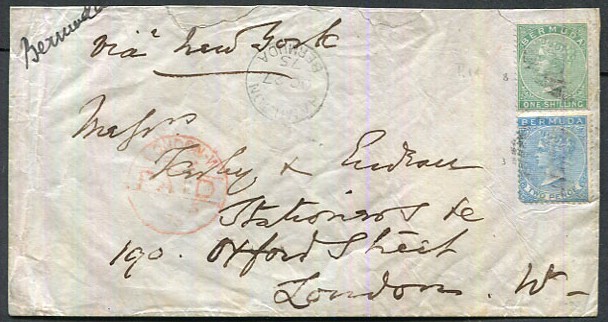 Bermuda
via New York
BERMUDA
ONE SHILLING
BERMUDA
TWO PENCE
HAMILTON
BERMUDA
LONDON-W
PAID
Messrs
& 
Stationers &c
190. Oxford Street
London. W-